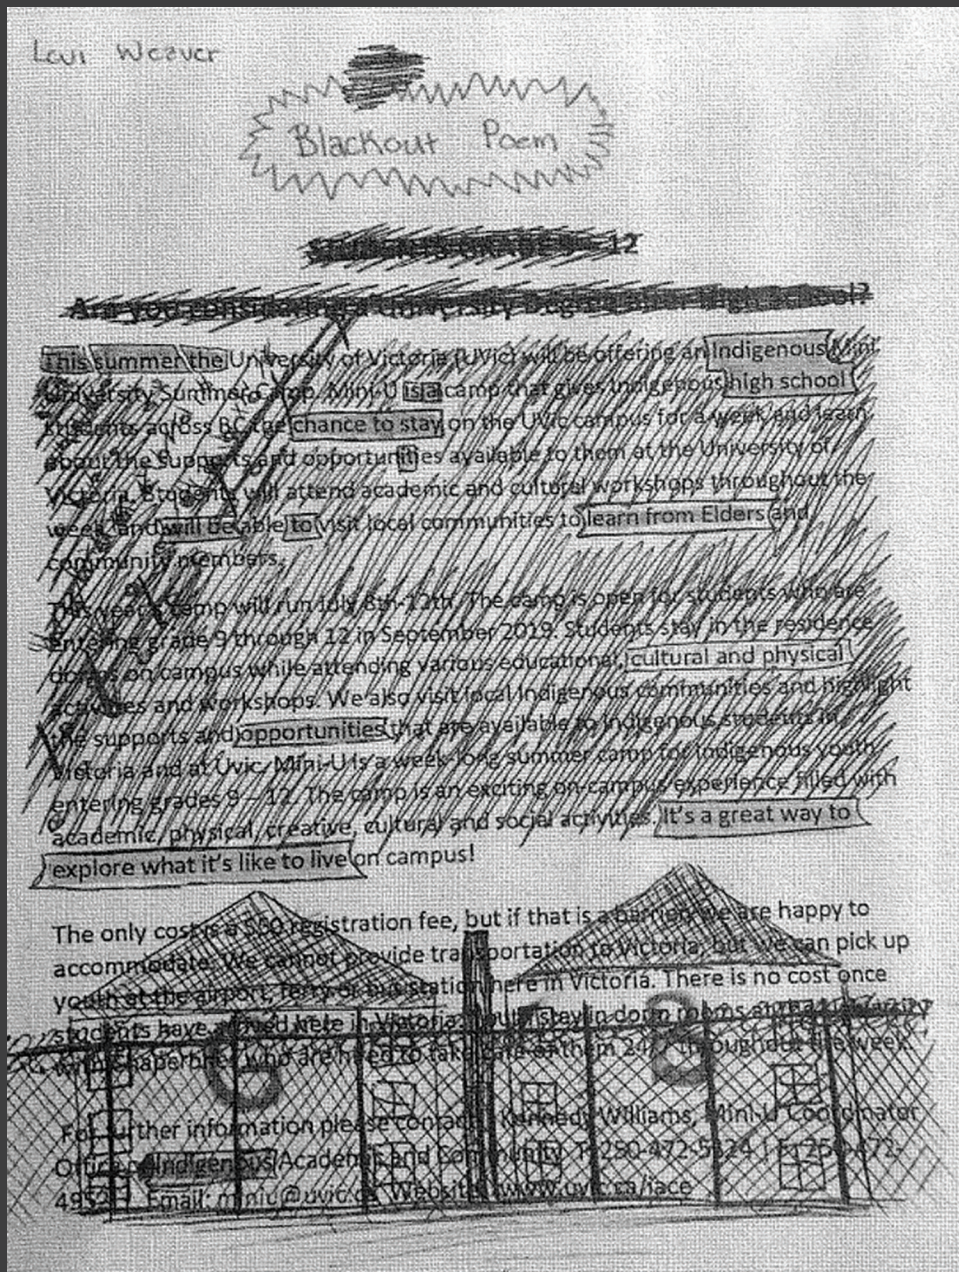 Levi Weaver
Blackout Poem
12
Are you considering a University Degree after High School?
This summer the University of Victoria (UVic) will be offering an Indigenous Mini
University Summer Camp. Mini-U is a camp that gives Indigenous high school
students across BC the chance to stay on the UVic campus for a week and learn
about the supports and opportunities available to them at the University of
Victoria. Students will attend academic and cultural workshops throughout the
week and will be able to visit local communities to learn from Elders and
community members.
This year's camp will run July 8th-12th. The camp is open for students who are
Entering grade 9 through 12 in September 2019. Students stay in the residence
dorms on campus while attending various educational, cultural and physical
activities and workshops. We also visit local Indigenous communities and highlight
the supports and opportunities that are available to Indigenous students in
Victoria and at Uvic. Mini-U is a week-long summer camp for Indigenous youth
entering grades 9 – 12. The camp is an exciting on-campus experience filled with
academic, physical, creative, cultural and social activities. It's a great way to
explore what it's like to live on campus!
The only cost is a $60 registration fee, but if that is a barrier we are happy to
accommodate. We cannot provide transportation to Victoria, but we can pick up
youth at the airport, ferry or bus station here in Victoria. There is no cost once
students have arrived here in Victoria. stay in dorm rooms at
with chaperones who are here to take care of them 24/7 throughout the week.
For further information please contact: Kennedy Williams, Mini-U Coordinator
Office of Indigenous Academic and Community T: 250-472-5524 | F: 250-472-
4952 | Email: miniu@uvic.ca Website: www.uvic.ca/iace